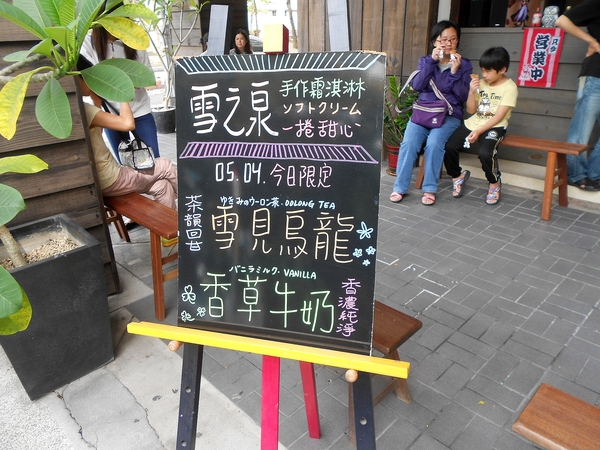 手作霜淇淋
雪之泉
ソフトクリーム
一捲甜心
05.04.今日限定
茶韻回甘
ゆきみのウーロン茶·OOLONG TEA
雪見烏龍
バニラミルク·VANILLA
香草牛奶
香濃純淨
営業中